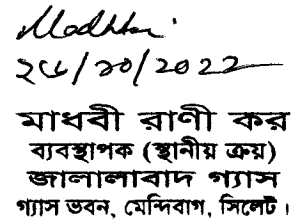 ২৬/১০/2022
মাধবী রাণী কর
ব্যবস্থাপক (স্থানীয় ক্রয়)
জালালাবাদ গ্যাস
গ্যাস ভবন, মেন্দিবাগ, সিলেট।